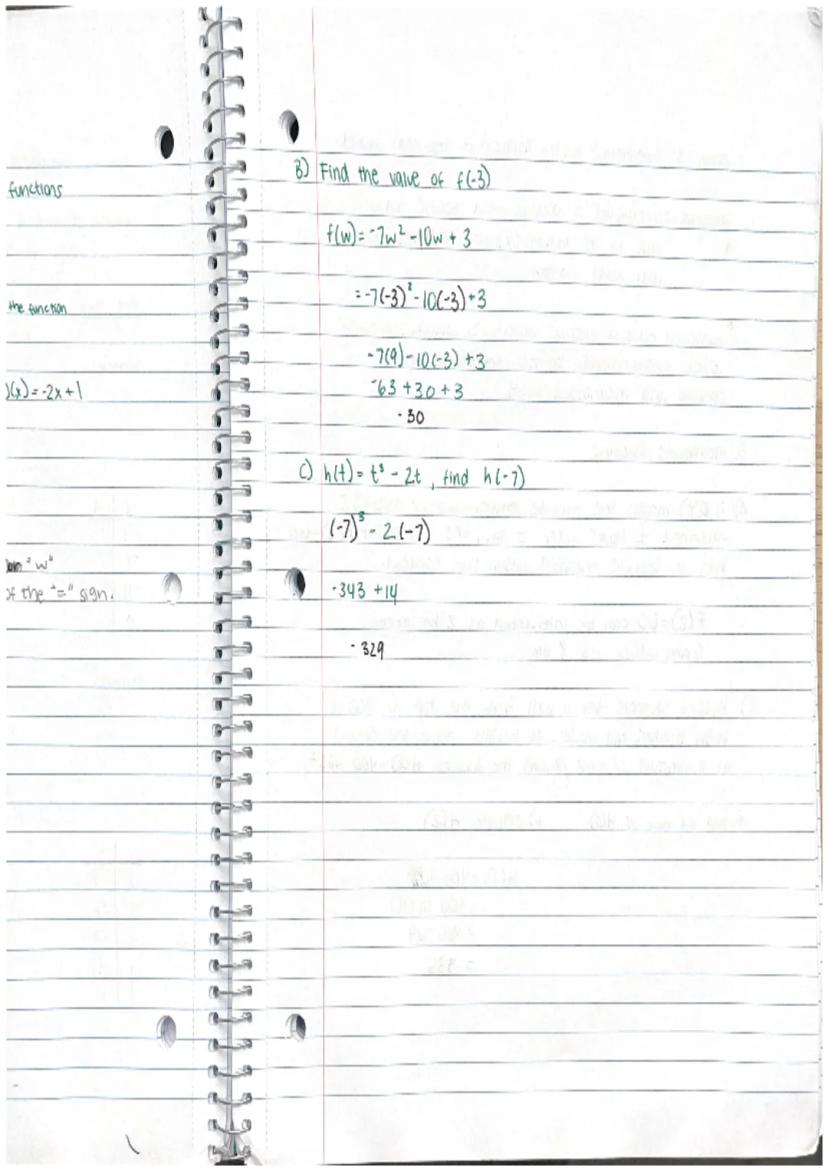 functions
the function
)(x) = -2x + 1
"w"
of the "=" sign.
B) Find the value of f(-3)
f(w) = -7w² - 10w + 3
= -7(-3)² - 10(-3) + 3
-7(9) - 10(-3) + 3
-63 + 30 + 3
-30
C) h(t) = t³ - 2t, find h(-7)
(-7)³ - 2(-7)
-343 + 14
-329